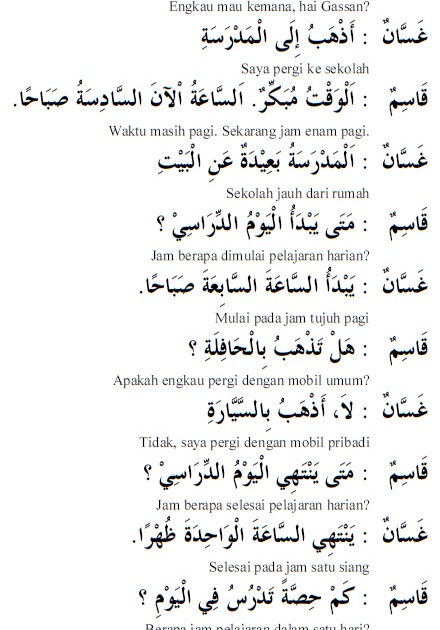 Engkau mau kemana, hai Gassan?
غَسَّانٌ : أَذْهَبُ إِلَى الْمَدْرَسَةِ
Saya pergi ke sekolah
قَاسِمٌ : اَلْوَقْتُ مُبَكِّرٌ. اَلسَّاعَةُ اْلآنَ السَّادِسَةُ صَبَاحًا.
Waktu masih pagi. Sekarang jam enam pagi.
غَسَّانٌ : اَلْمَدْرَسَةُ بَعِيْدَةٌ عَنِ الْبَيْتِ
Sekolah jauh dari rumah
قَاسِمٌ : مَتَى يَبْدَأُ الْيَوْمُ الدِّرَاسِيْ ؟
Jam berapa dimulai pelajaran harian?
غَسَّانٌ : يَبْدَأُ السَّاعَةَ السَّابِعَةَ صَبَاحًا.
Mulai pada jam tujuh pagi
قَاسِمٌ : هَلْ تَذْهَبُ بِالْحَافِلَةِ ؟
Apakah engkau pergi dengan mobil umum?
غَسَّانٌ : لاَ، أَذْهَبُ بِالسَّيَّارَةِ
Tidak, saya pergi dengan mobil pribadi
قَاسِمٌ : مَتَى يَنْتَهِي الْيَوْمُ الدِّرَاسِيْ ؟
Jam berapa selesai pelajaran harian?
غَسَّانٌ : يَنْتَهِي السَّاعَةَ الْوَاحِدَةَ ظُهْرًا.
Selesai pada jam satu siang
قَاسِمٌ : كَمْ حِصَّةً تَدْرُسُ فِي الْيَوْمِ ؟
Berapa jam pelajaran dalam satu hari?